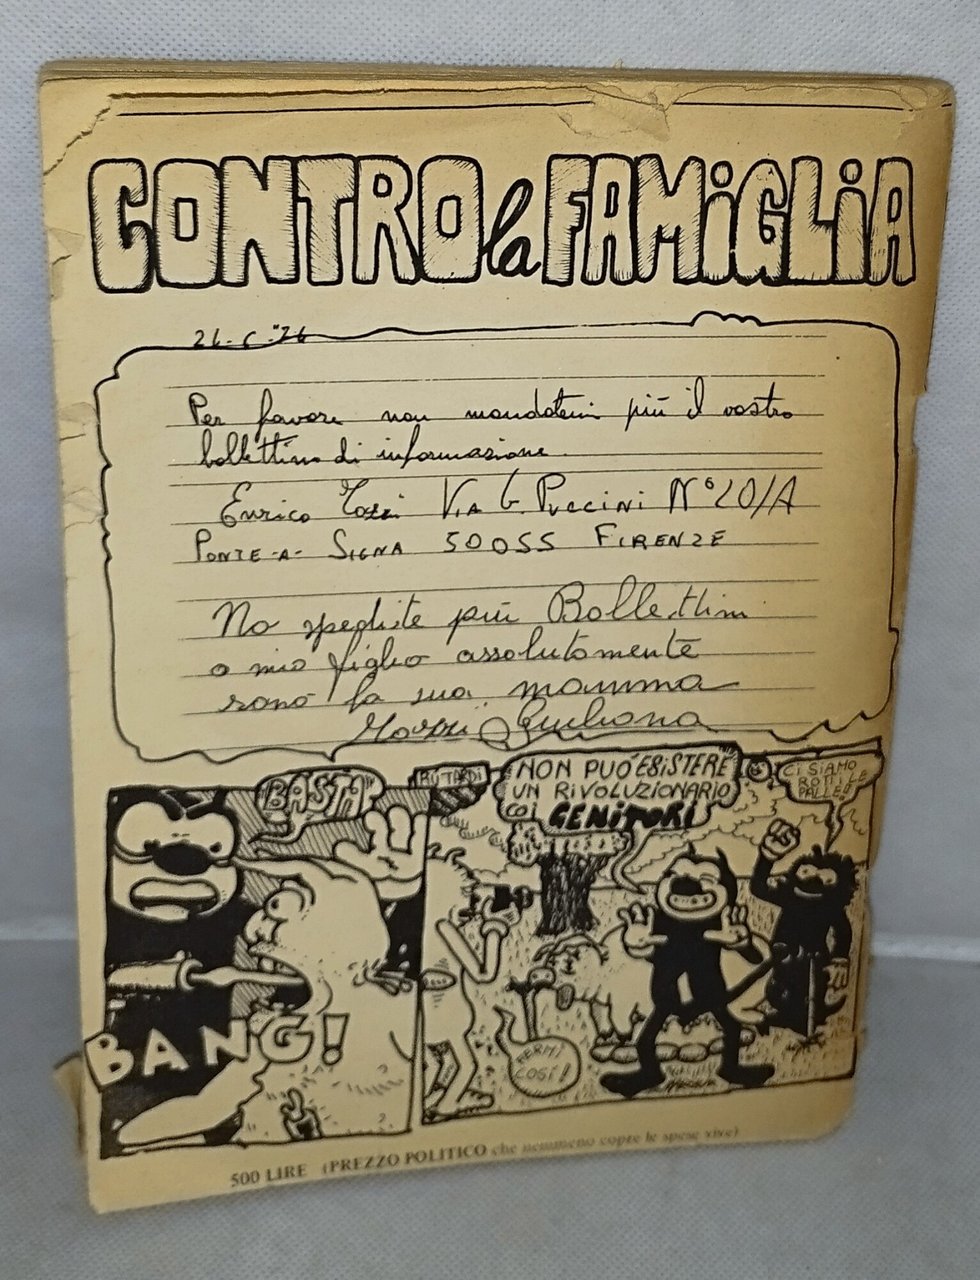 CONTRO la FAMiGLiA
Per favore non mandatemi più il vostro
bollettino di informazione.
Enrico VIA G. PUCCINI N° 20/A
PONTE-A- SIGNA 50055 FIRENZE
No spedite più Bollettini
a mio figlio assolutamente
sono la sua mamma
Giuliana
"BASTA"
NON PUÓ ESiSTERE
UN RiVOLUZIONARIO
COi GENiTORi
Ci SIAMO
ROTTI LE
PALLE!!
BANG!
FERMI
COSÍ!
500 LIRE (PREZZO POLITICO che nemmeno copre le spese vive)